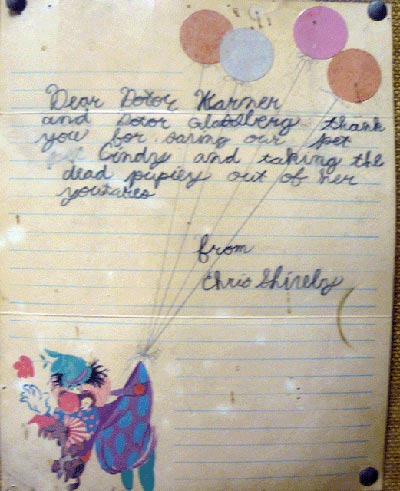 Dear Dotor Warner
and Dotor Glassberg thank
you for saving our pet
Cindy and taking the
dead pupiey out of her
youtares
from
Chris Shirely